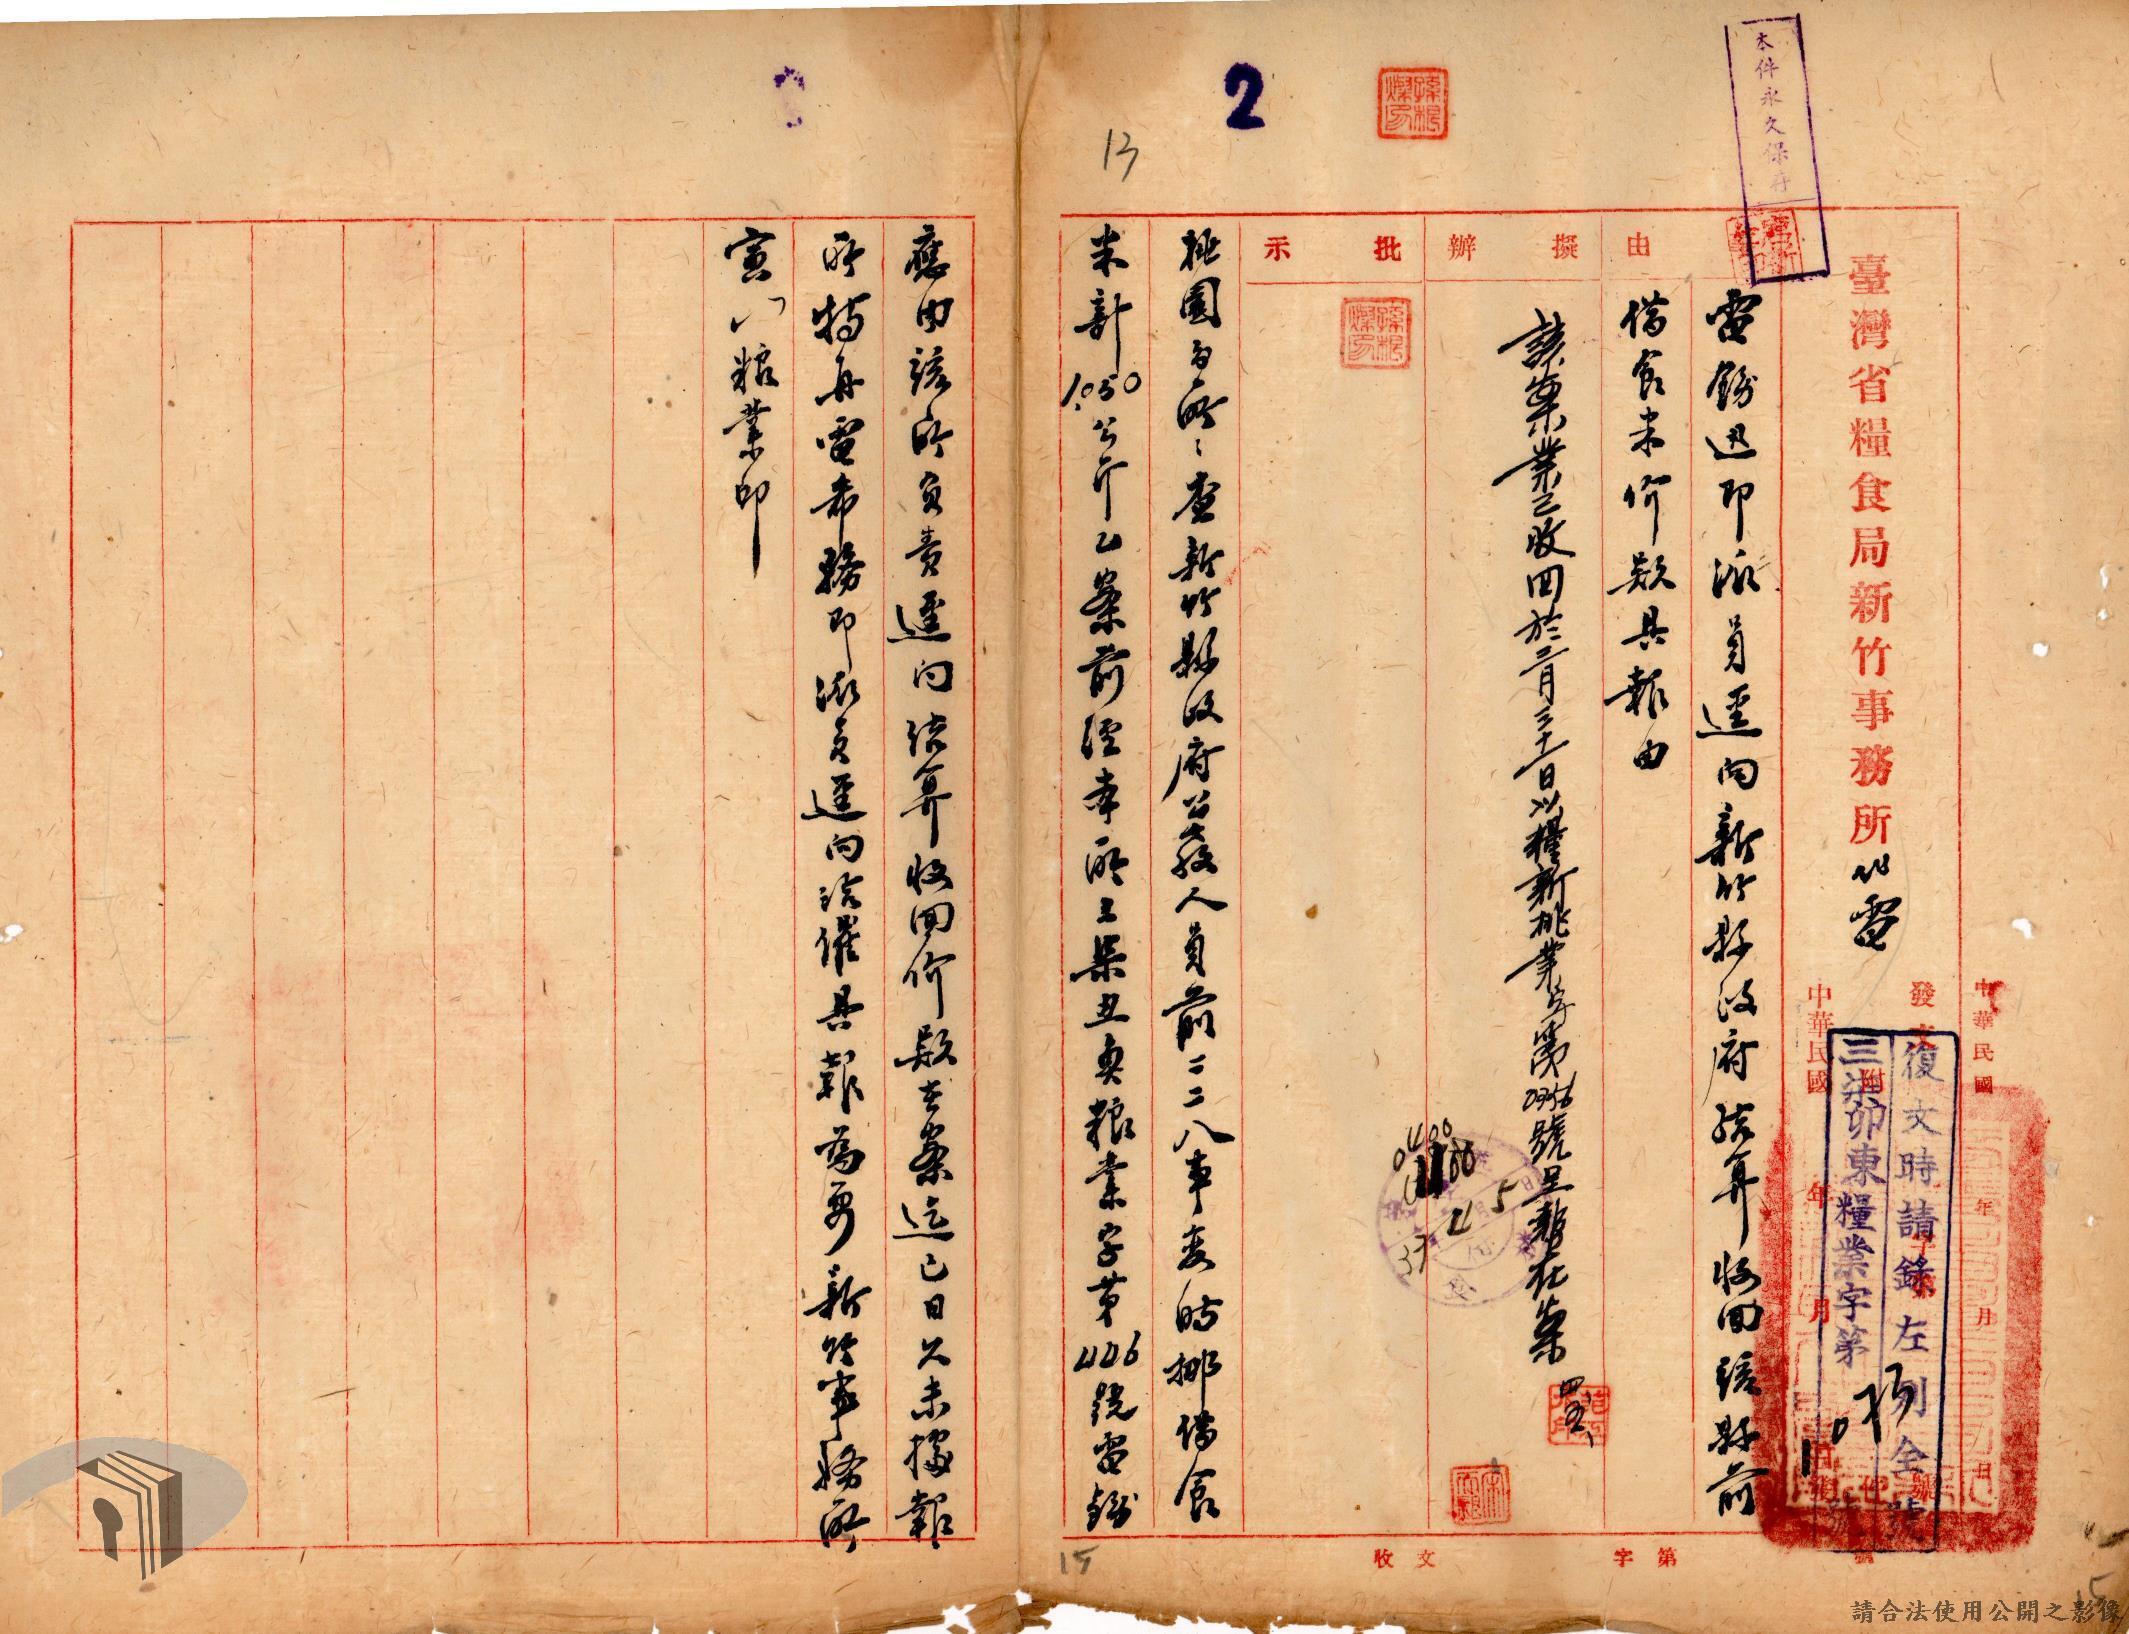 本件永久保存
臺灣省糧食局新竹事務所代電
中華民國 年 月 日
發文
復文時請錄左列全號
三柒卯東糧業字第 號
附
中華民國 年 月 日
由
電飭迅即派員逕向新竹縣政府結算收回該縣前
借食米價款具報由
擬辦
該案業已收回於三月三十一日以糧新桃業字第0956號呈報在案
四、五、
批示
37 4 5
0400
桃園分所：查新竹縣政府公教人員前二二八事変時挪借食
米計1.050公斤乙案前經本所三柒丑奐糧業字第446號電飭
應由該所負責逕向結算收回價款在案迄已日久未據報
所特再電希務即派員逕向洽催具報為要新竹事務所
寅 糧業印
收文 字第 號
2
13
15
15
請合法使用公開之影像